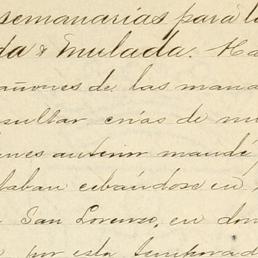 semanarias para l
da & Mulada. Ha
añones de las mana
sultar crias de mu
enes autenor mandé
taban cebándose en
San Lorenzo, en don
por esta temporad